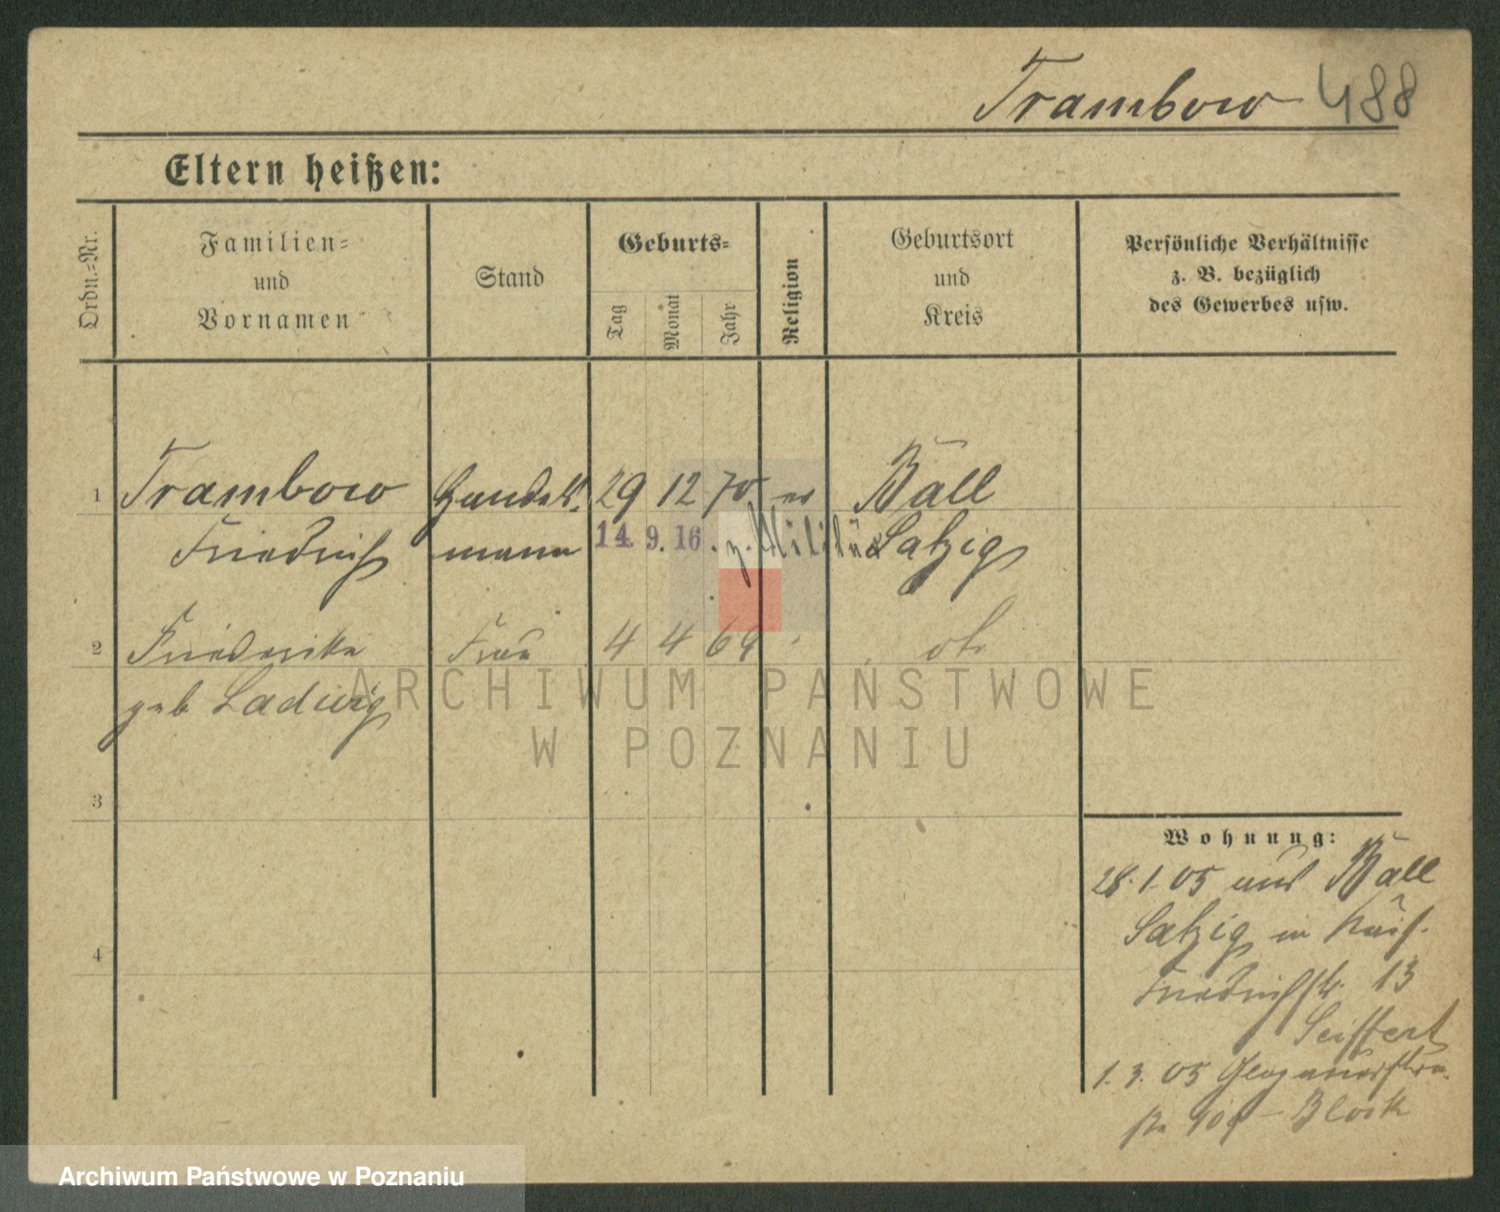 Trambow 488
Eltern heißen:
Ordn.-Nr.
Familien-
und
Vornamen
Stand
Geburts-
Tag
Monat
Jahr
Religion
Geburtsort
und
Kreis
Persönliche Verhältnisse
z. B. bezüglich
des Gewerbes usw.
1 Trambow Handels- 29 12 70 ev Bäll
Friedrich mann 14. 9. 16. z. Militär Salzig
2 Friederike Frau 4 4 69
geb Ladwig
3
4
Wohnung:
28.1.05 aus Bäll
Salzig in Kais.
Friedrichstr. 13
Seiffert
1.3.05
Block
ARCHIWUM PAŃSTWOWE
W POZNANIU
Archiwum Państwowe w Poznaniu